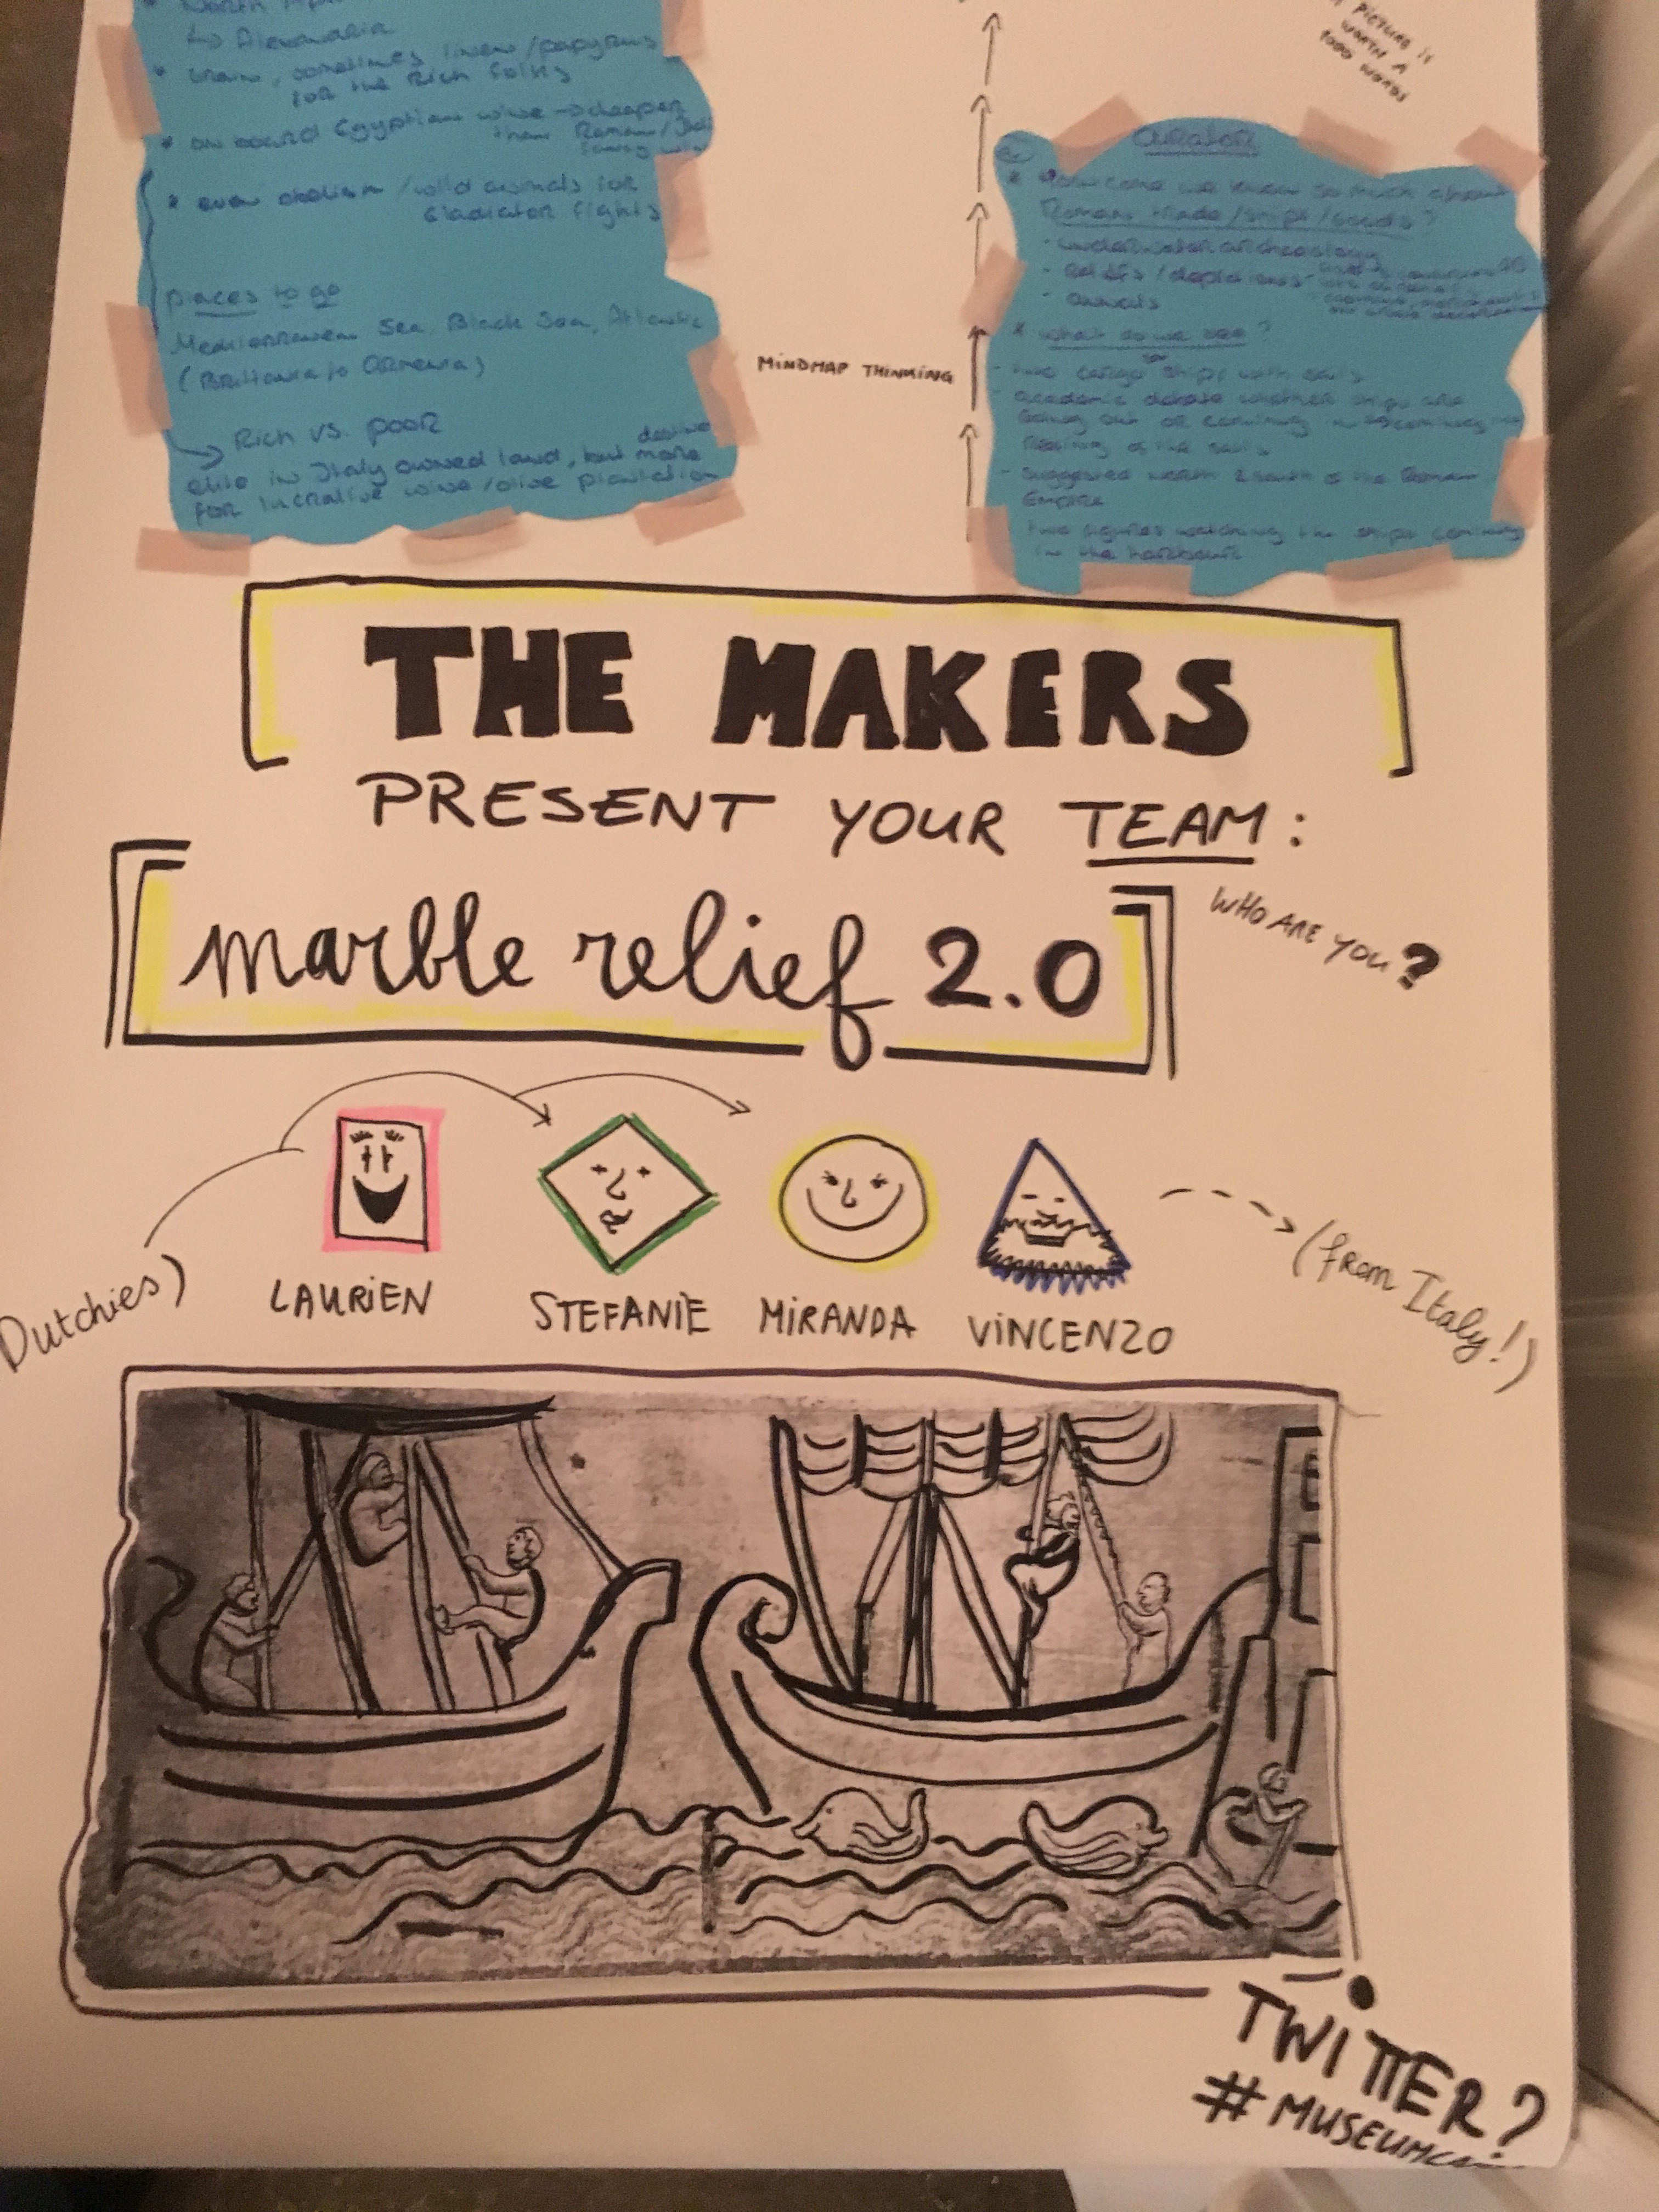 North
↳ Alexandria
* Grain, sometimes linen/papyrus
for the Rich folks
* on board Egyptian wine → cheaper
then Roman/
* even obelisk/wild animals for
Gladiator fights
places to go
Mediterranean Sea, Black Sea, Atlantic
(Brittania to Armenia)
→ Rich vs. poor
elite in Italy owned land, but more
for lucrative wine/olive plantation
A PICTURE IS
WORTH A
1000 WORDS
MINDMAP THINKING
CURATOR
* How come we know so much about
Roman trade/ships/goods?
- underwater archaeology
- Reliefs/depictions
- annals
* what do we see?
- two cargo ships with sails
- academic debate whether ships are
going out or coming in
of the sails
- suggested north & south of the Roman
Empire
two figures watching the ships coming
in the harbour
THE MAKERS
PRESENT YOUR TEAM:
marble relief 2.0
WHO ARE YOU?
Dutchies)
LAURIEN
STEFANIE
MIRANDA
VINCENZO
(from Italy!)
TWITTER?